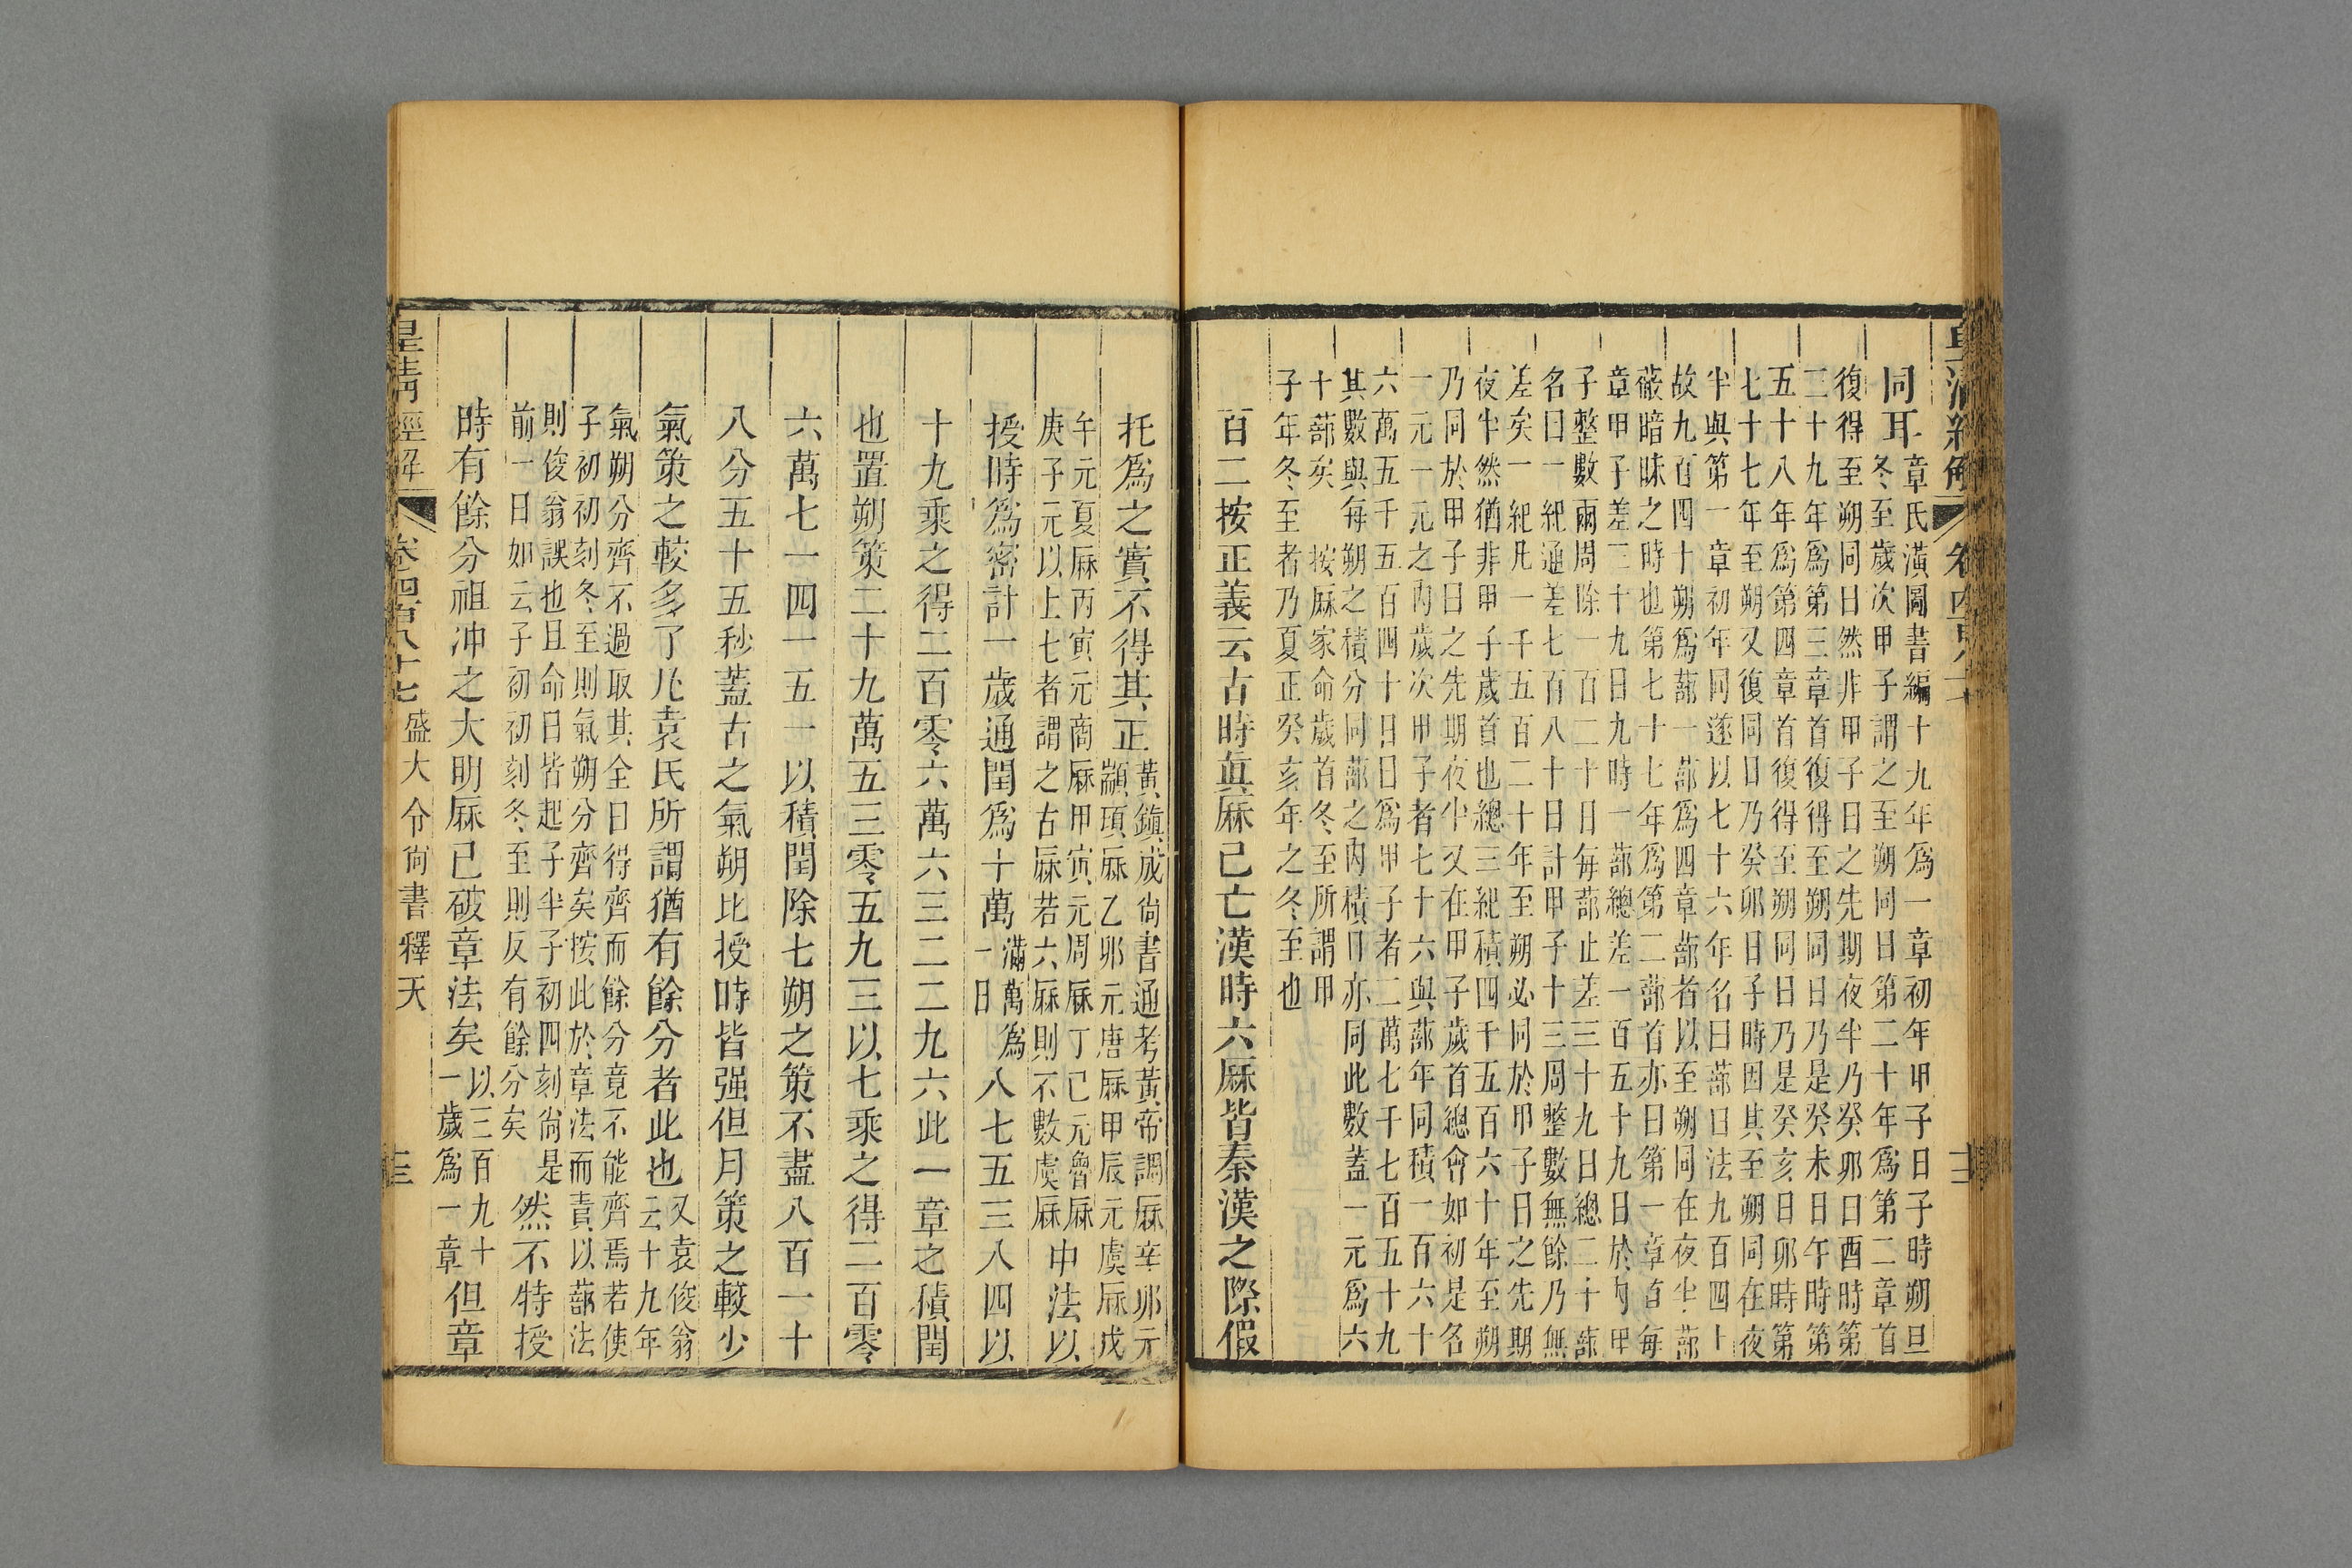 皇清經解 卷四百八十七
同耳章氏潢圖書編十九年為一章初年甲子日子時朔旦
冬至歲次甲子謂之至朔同日第二十年為第二章首
復得至朔同日然非甲子日之先期夜半乃癸卯日酉時第
三十九年為第三章首復得至朔同日乃是癸未日午時第
五十八年為第四章首復得至朔同日乃是癸亥日卯時第
七十七年至朔又復同日乃癸卯日子時因其至朔同在夜
半與第一章初年同遂以七十六年名曰蔀日法九百四十
故九百四十朔為蔀一蔀為四章蔀者以至朔同在夜半蔀
蔽暗昧之時也第七十七年為第二蔀首亦曰第一章首每
章甲子差三十九日九時一蔀總差一百五十九日於旬甲
子整數兩周除一百二十日每蔀止差三十九日總二十蔀
名曰一紀通差七百八十日計甲子十三周整數無餘乃無
差矣一紀凡一千五百二十年至朔必同於甲子日之先期
夜半然猶非甲子歲首也總三紀積四千五百六十年至朔
乃同於甲子日之先期夜半又在甲子歲首總會如初是名
一元一元之內歲次甲子者七十六與蔀年同積一百六十
六萬五千五百四十日日為甲子者二萬七千七百五十九
其數與每朔之積分同蔀之內積日亦同此數蓋一元為六
十蔀矣 按厤家命歲首冬至所謂甲
子年冬至者乃夏正癸亥年之冬至也
百二按正義云古時眞厤已亡漢時六厤皆秦漢之際假
托為之實不得其正黃鎭成尙書通考黃帝調厤辛卯元
顓頊厤乙卯元唐厤甲辰元虞厤戊
午元夏厤丙寅元商厤甲寅元周厤丁巳元魯厤
庚子元以上七者謂之古厤若六厤則不數虞厤中法以
授時為密計一歲通閏為十萬滿萬為
一日八七五三八四以
十九乘之得二百零六萬六三二二九六此一章之積閏
也置朔策二十九萬五三零五九三以七乘之得二百零
六萬七一四一五一以積閏除七朔之策不盡八百一十
八分五十五秒蓋古之氣朔比授時皆强但月策之較少
氣策之較多了凡袁氏所謂猶有餘分者此也又袁俊翁
云十九年
氣朔分齊不過取其全日得齊而餘分竟不能齊焉若使
子初初刻冬至則氣朔分齊矣按此於章法而責以蔀法
則俊翁誤也且命日皆起子半子初四刻尙是
前一日如云子初初刻冬至則反有餘分矣然不特授
時有餘分祖冲之大明厤已破章法矣以三百九十
一歲為一章但章
皇清經解 卷四百八十七 盛大令尙書釋天 十三